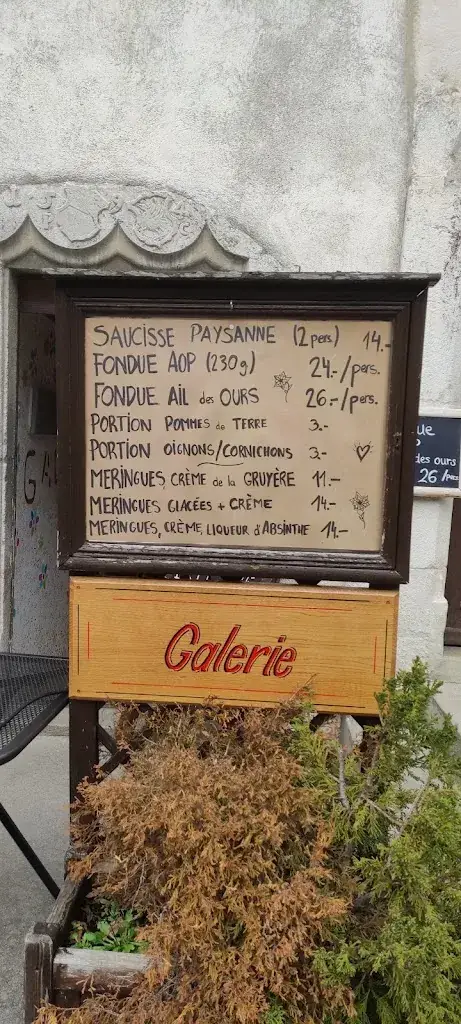 SAUCISSE PAYSANNE (2 pers.) 14.-
FONDUE AOP (230g) 24.-/pers.
FONDUE AIL des OURS 26.-/pers.
PORTION POMMES de TERRE 3.-
PORTION OIGNONS/CORNICHONS 3.-
MERINGUES, CRÈME de la GRUYÈRE 11.-
MERINGUES GLACÉES + CRÈME 14.-
MERINGUES, CRÈME, LIQUEUR d'ABSINTHE 14.-
Galerie
GA
ue
des ours
26/pers